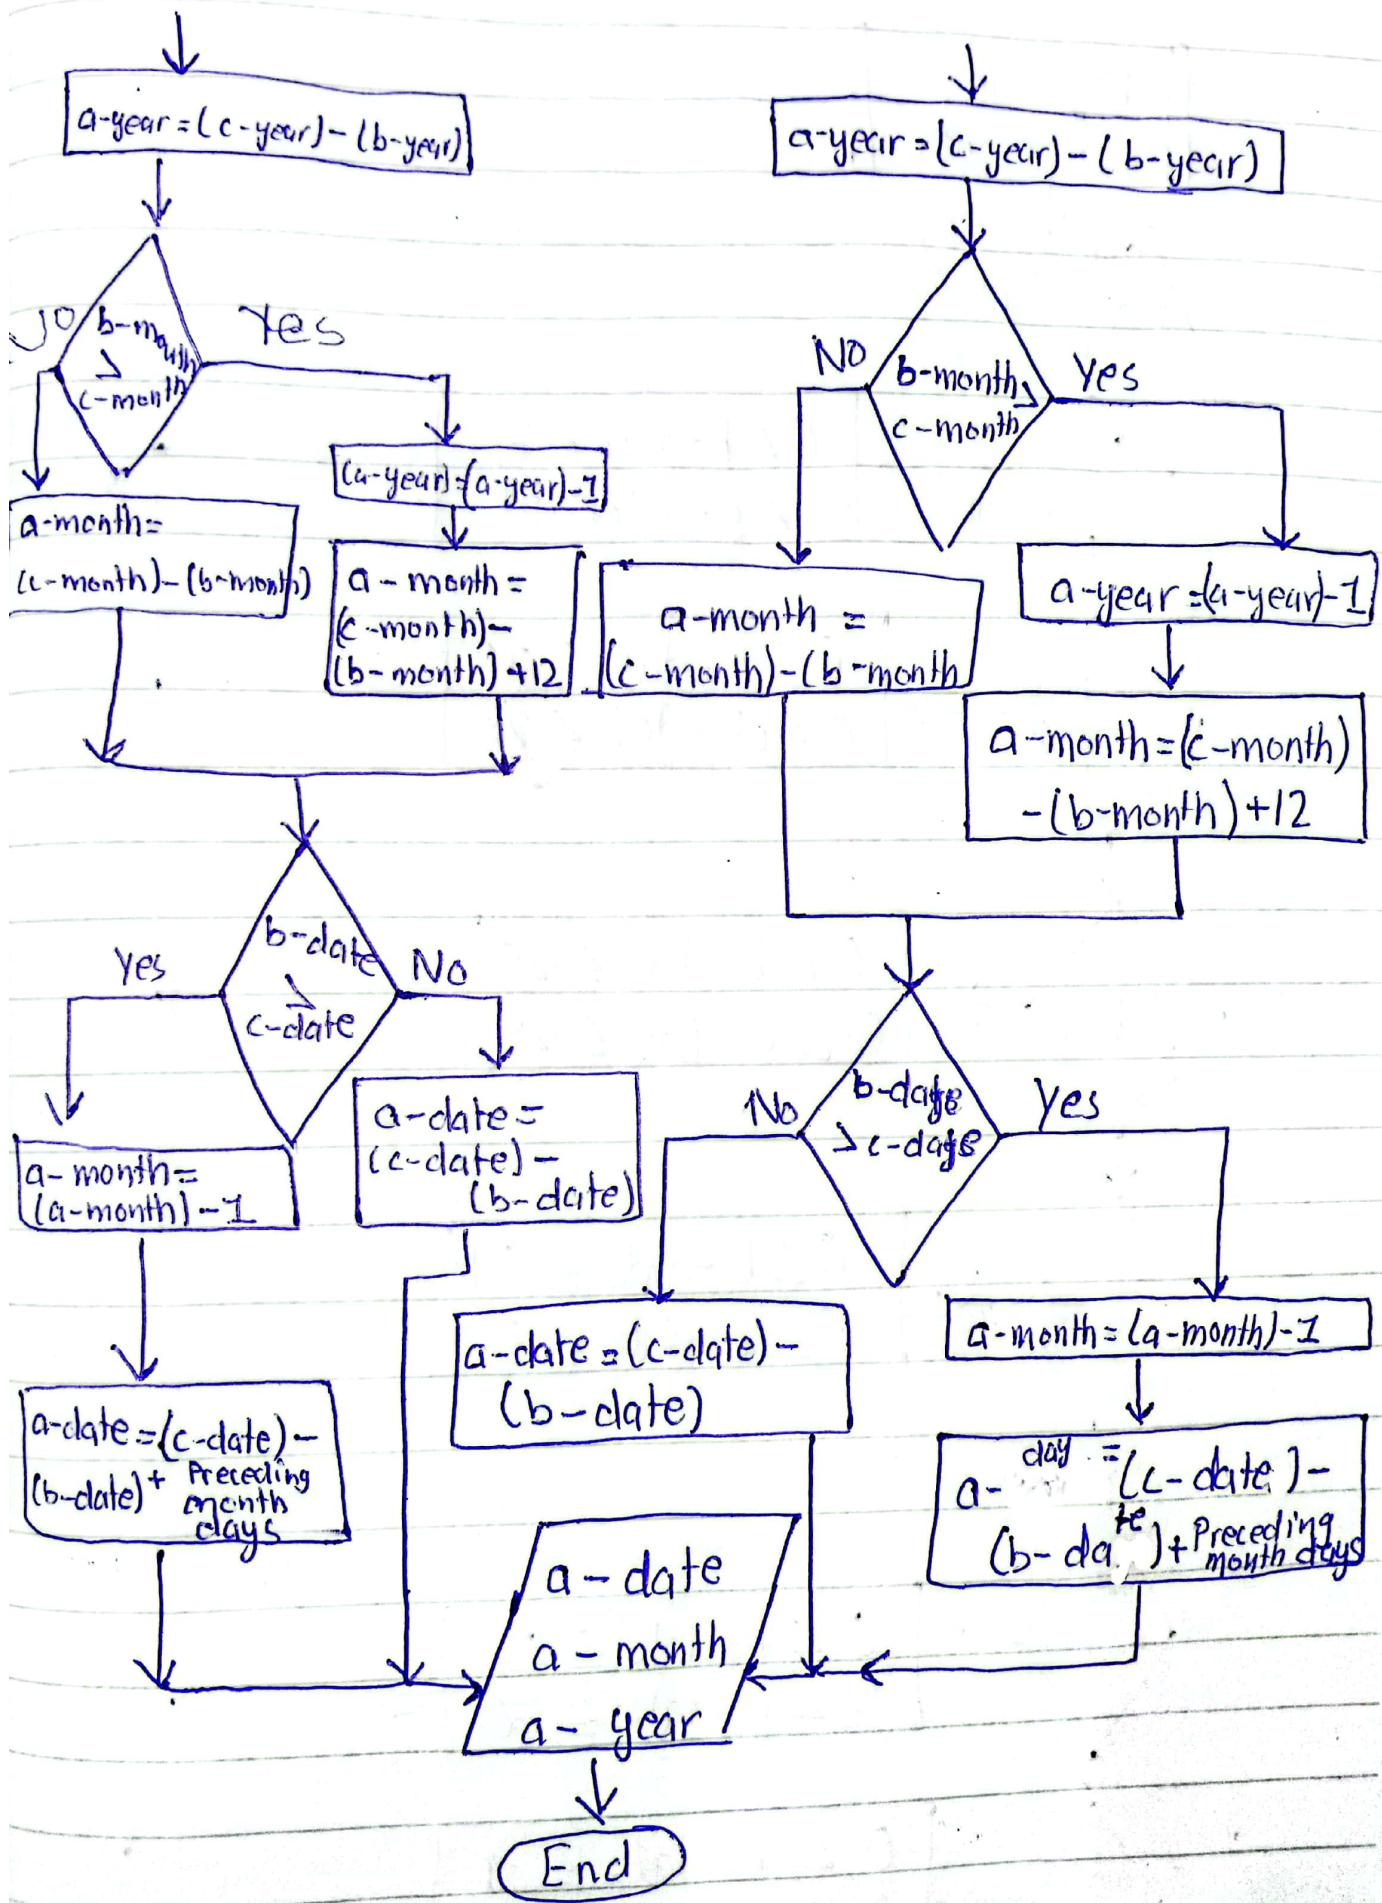 a-year=(c-year)-(b-year)
b-month
>
c-month
Yes
(a-year)=(a-year)-1
a-month=
(c-month)-(b-month)
a-month=
(c-month)-
(b-month)+12
b-date
>
c-date
Yes
No
a-month=
(a-month)-1
a-date=
(c-date)-
(b-date)
a-date=(c-date)-
(b-date)+ Preceding
month
days
a-year=(c-year)-(b-year)
b-month>
c-month
No
Yes
a-month =
(c-month)-(b-month
a-year=(a-year)-1
a-month=(c-month)
-(b-month)+12
No
Yes
a-date=(c-date)-
(b-date)
a-month=(a-month)-1
a-day=(c-date)-
(b-date)+Preceding
month days
a-date
a-month
a-year
End